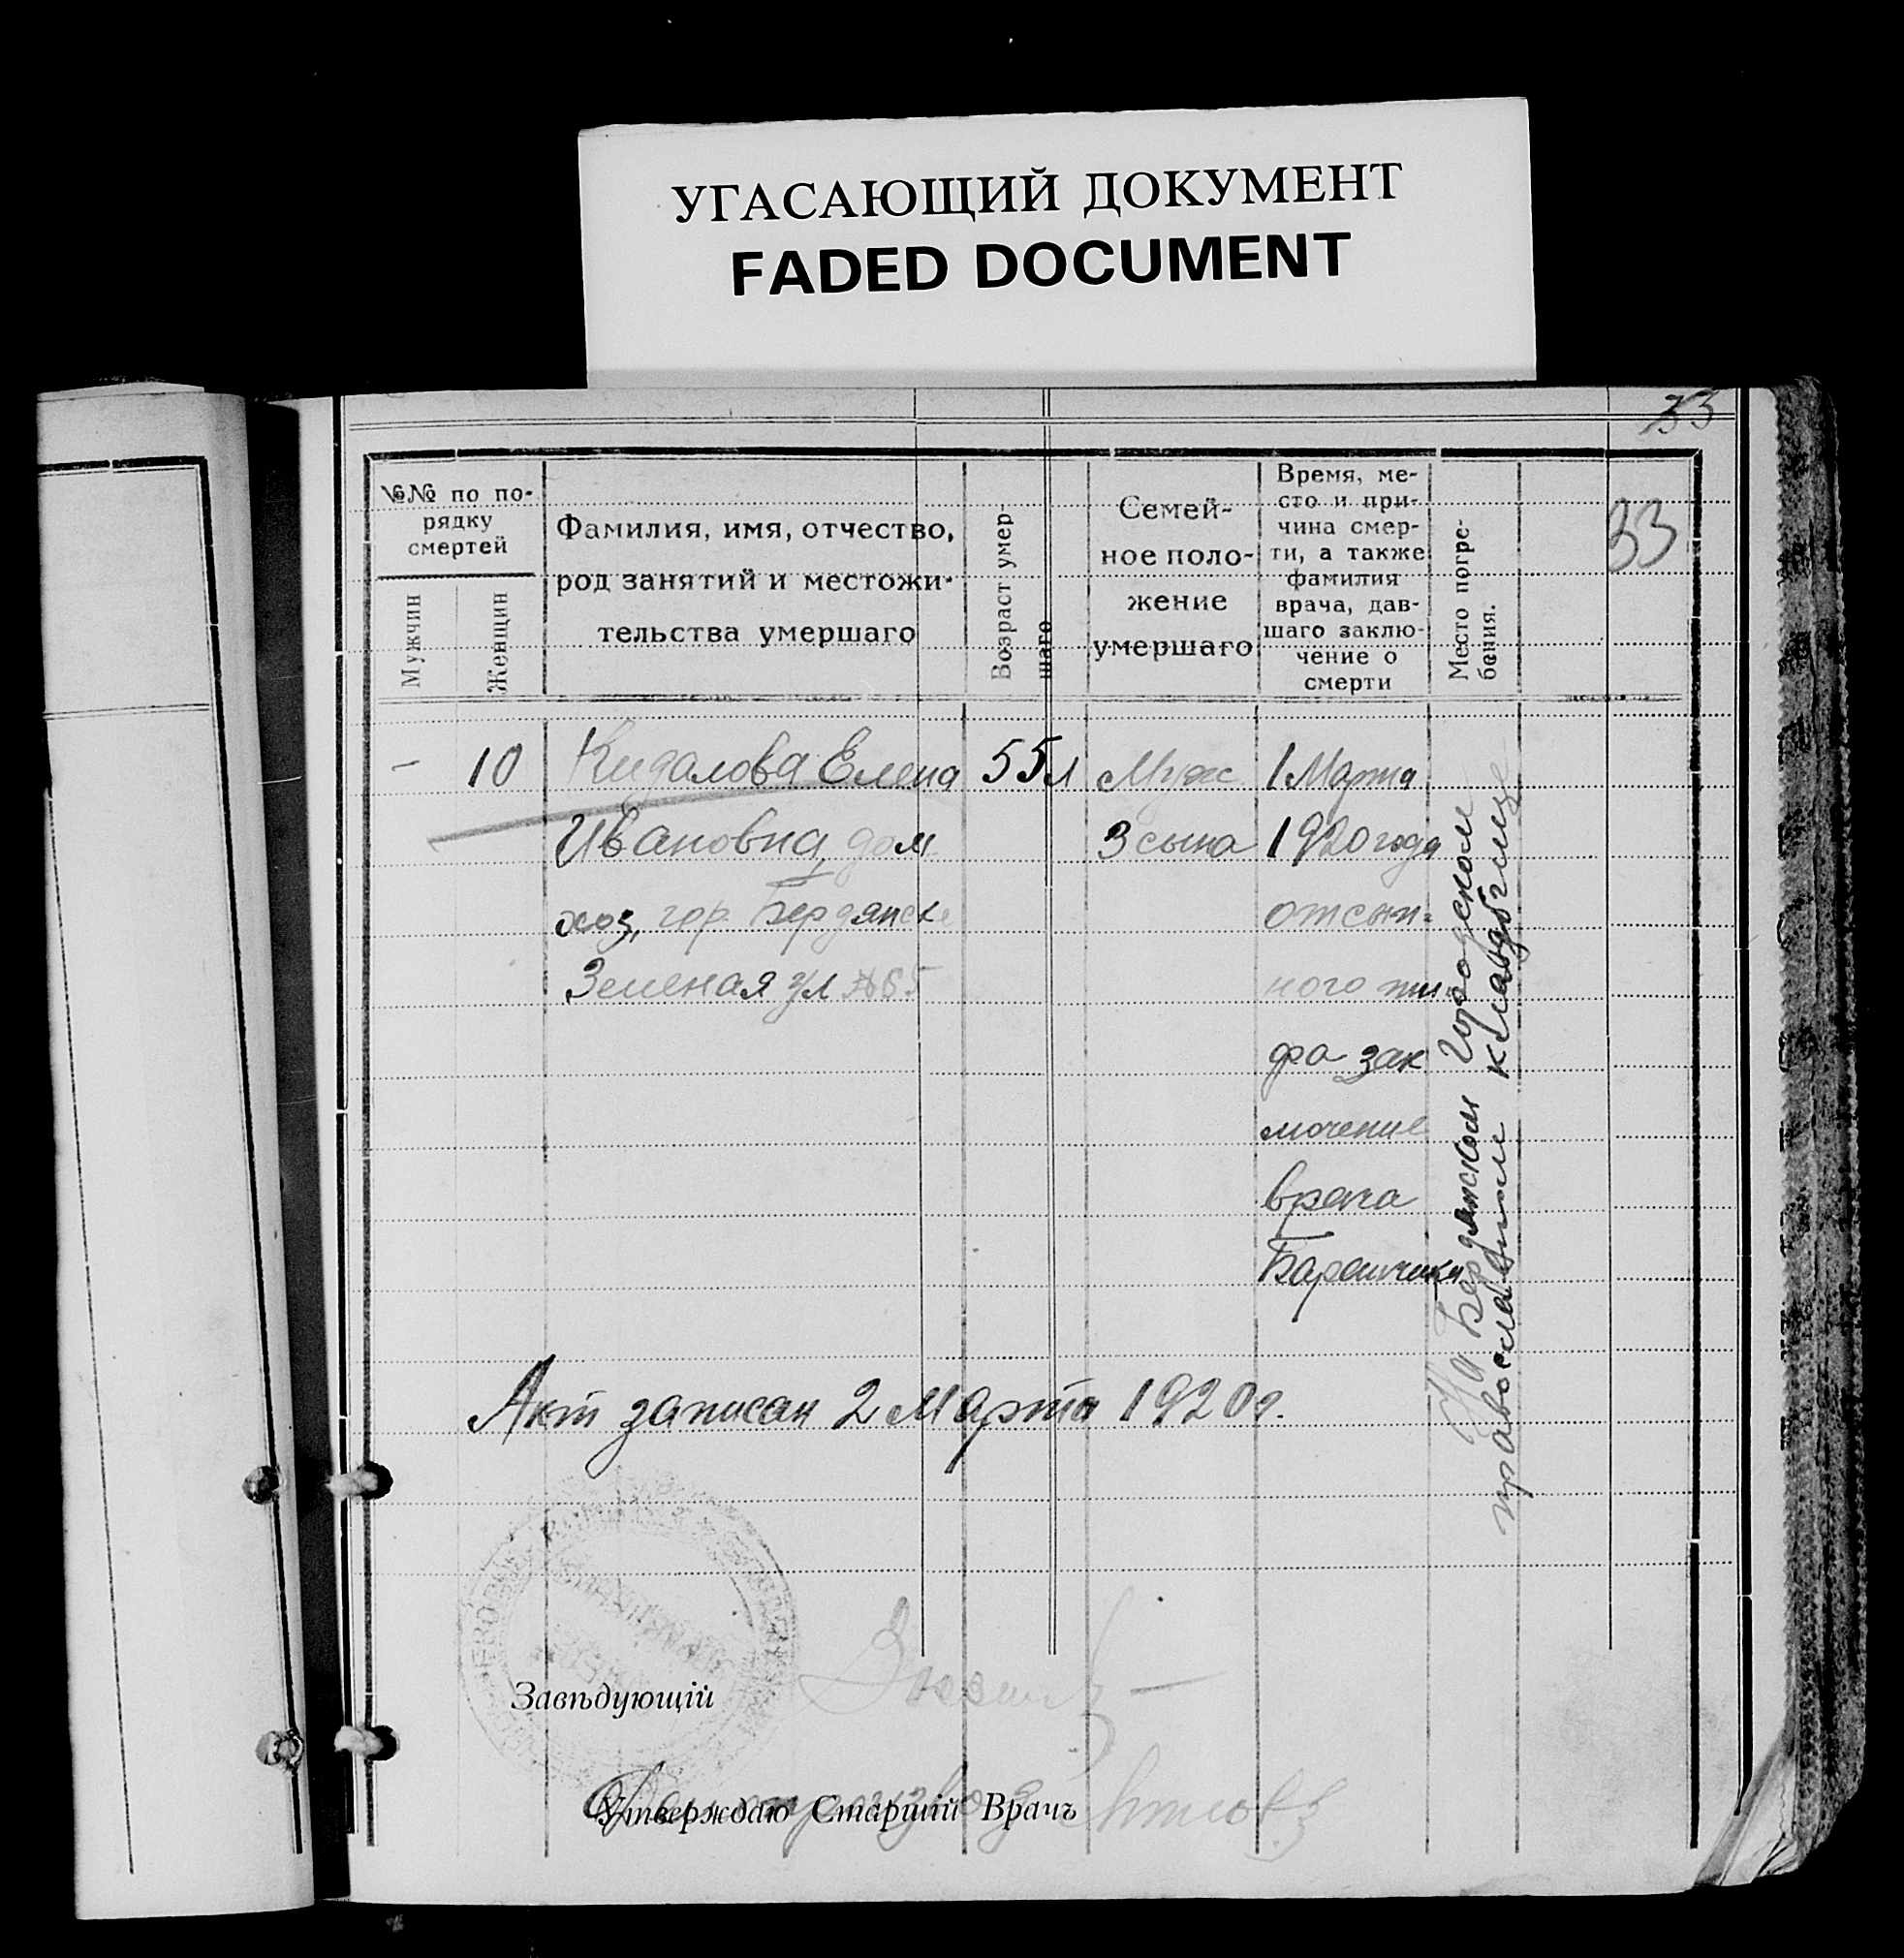 УГАСАЮЩИЙ ДОКУМЕНТ
FADED DOCUMENT
33
33
№№ по по-
рядку
смертей
Мужчин
Женщин
Фамилия, имя, отчество,
род занятий и местожи-
тельства умершаго
Возраст умер-
шаго
Семей-
ное поло-
жение
умершаго
Время, ме-
сто и при-
чина смер-
ти, а также
фамилия
врача, дав-
шаго заклю-
чение о
смерти
Место погре-
бения.
– 10
Кидалова Елена
Ивановна, дом.
хоз, гор. Бердянске
Зеленая ул № 65
55 л
Муж
3 сына
1 Марта
1920 года
от сып=
ного ти=
фа зак
лючение
врача
На Бердянском Городском
православном кладбище
Акт записан 2 Марта 1920 г.
Завѣдующій
Утверждаю Старшій Врачъ